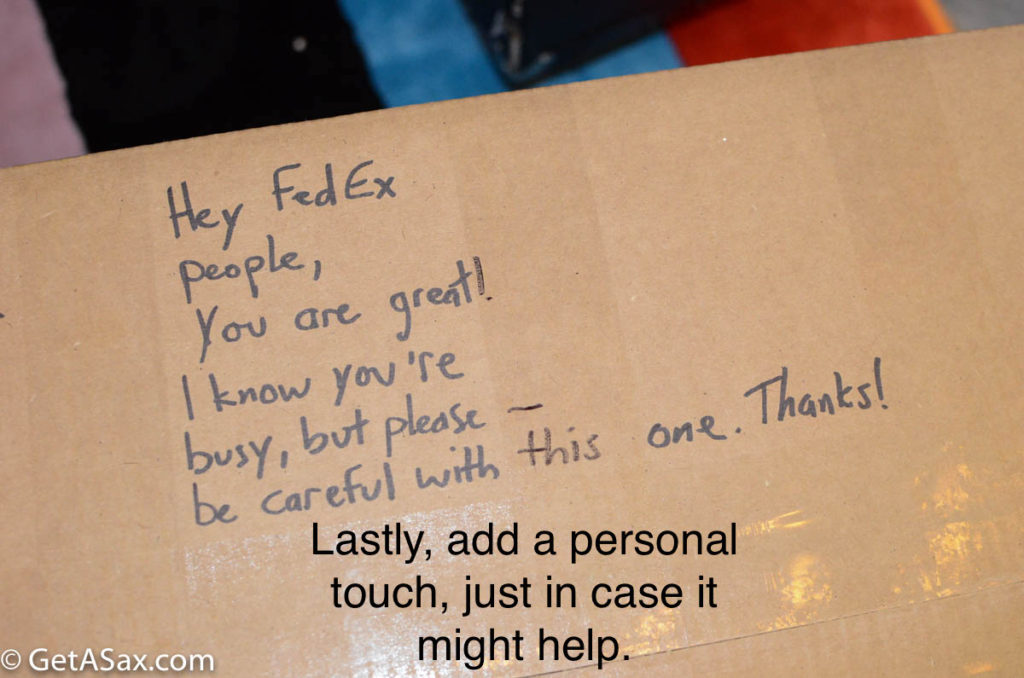 Hey FedEx
people,
You are great!
I know you're
busy, but please –
be careful with this one. Thanks!
Lastly, add a personal
touch, just in case it
might help.
© GetASax.com